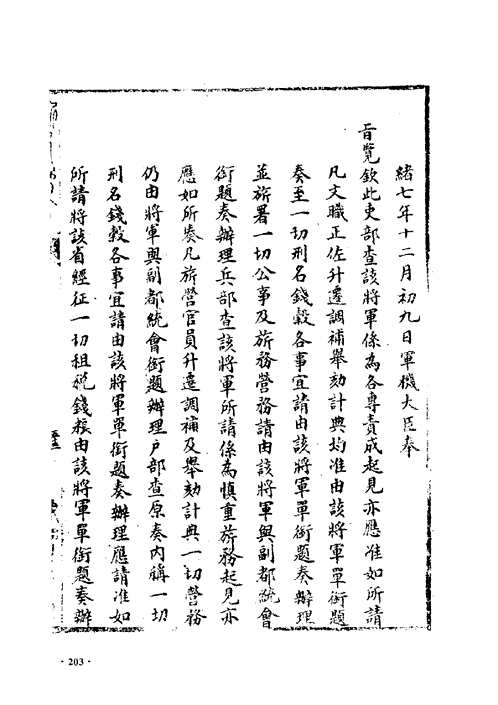 緒七年十二月初九日軍機大臣奉
旨覽欽此吏部查該將軍係為各專責成起見亦應准如所請
凡文職正佐升遷調補舉劾計典均准由該將軍單銜題
奏至一切刑名錢穀各事宜請由該將軍單銜題奏辦理
並旅署一切公事及旂務營務請由該將軍與副都統會
銜題奏辦理兵部查該將軍所請係為慎重旂務起見亦
應如所奏凡旂營官員升遷調補及舉劾計典一切營務
仍由將軍與副都統會銜題辦理戶部查原奏內稱一切
刑名錢穀各事宜請由該將軍單銜題奏辦理應請准如
所請將該省經征一切租稅錢糧由該將軍單銜題奏辦
· 203 ·